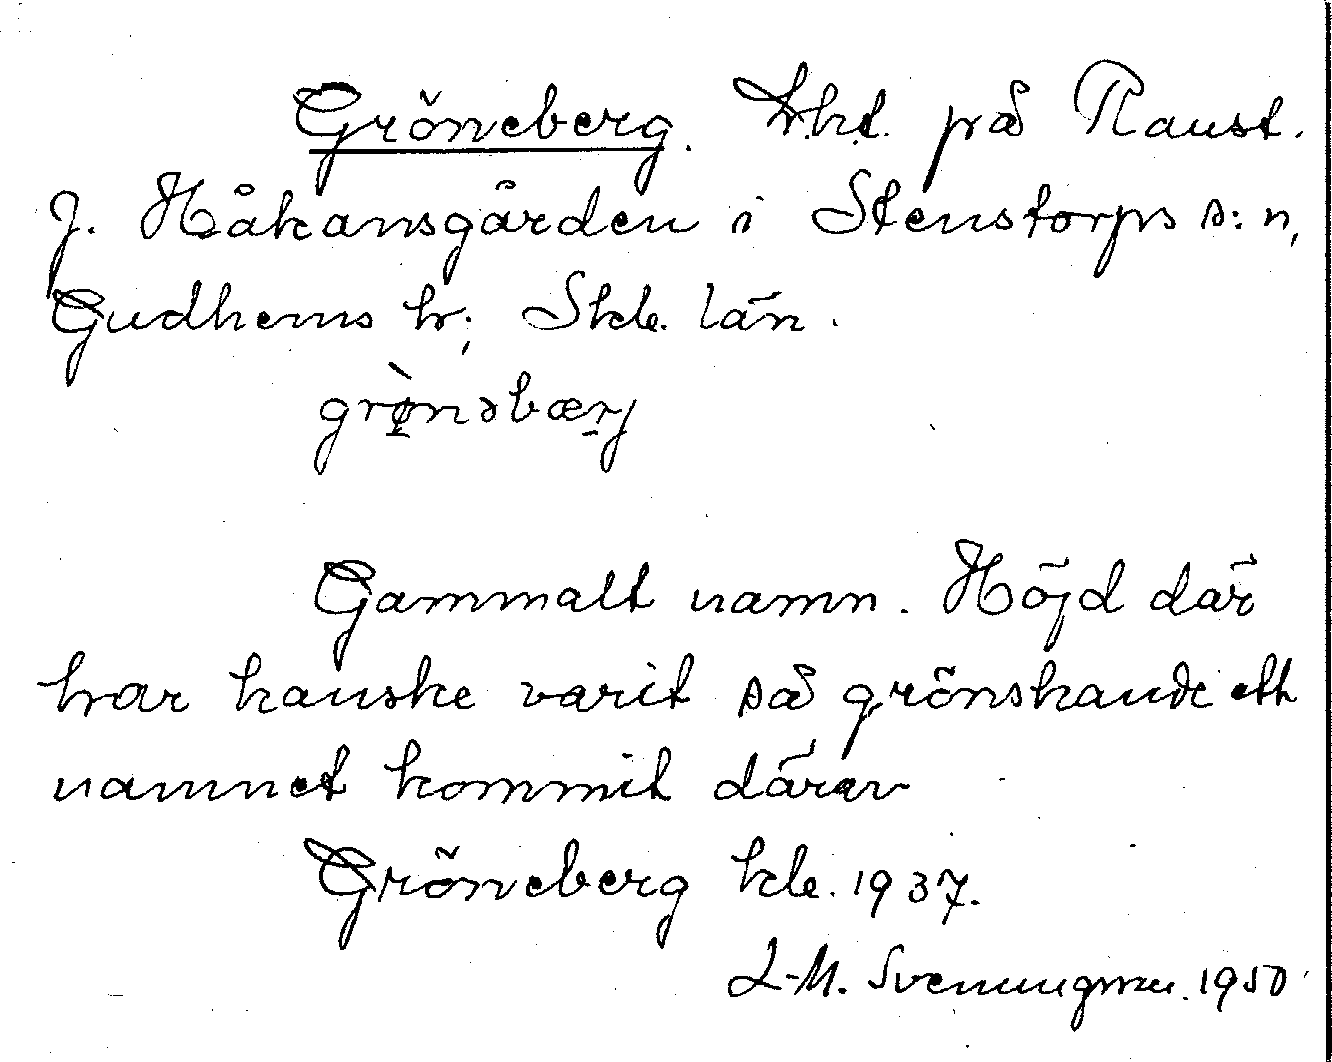 Gröneberg. Trht. på Raust.
J. Håkansgården i Stenstorps s:n,
Gudhems hr; Skb. län.
grø̀nəbærj
Gammalt namn. Höjd där
har kanske varit så grönskande att
namnet kommit därav
Gröneberg kb. 1937.
L-M. Svenungsson. 1950